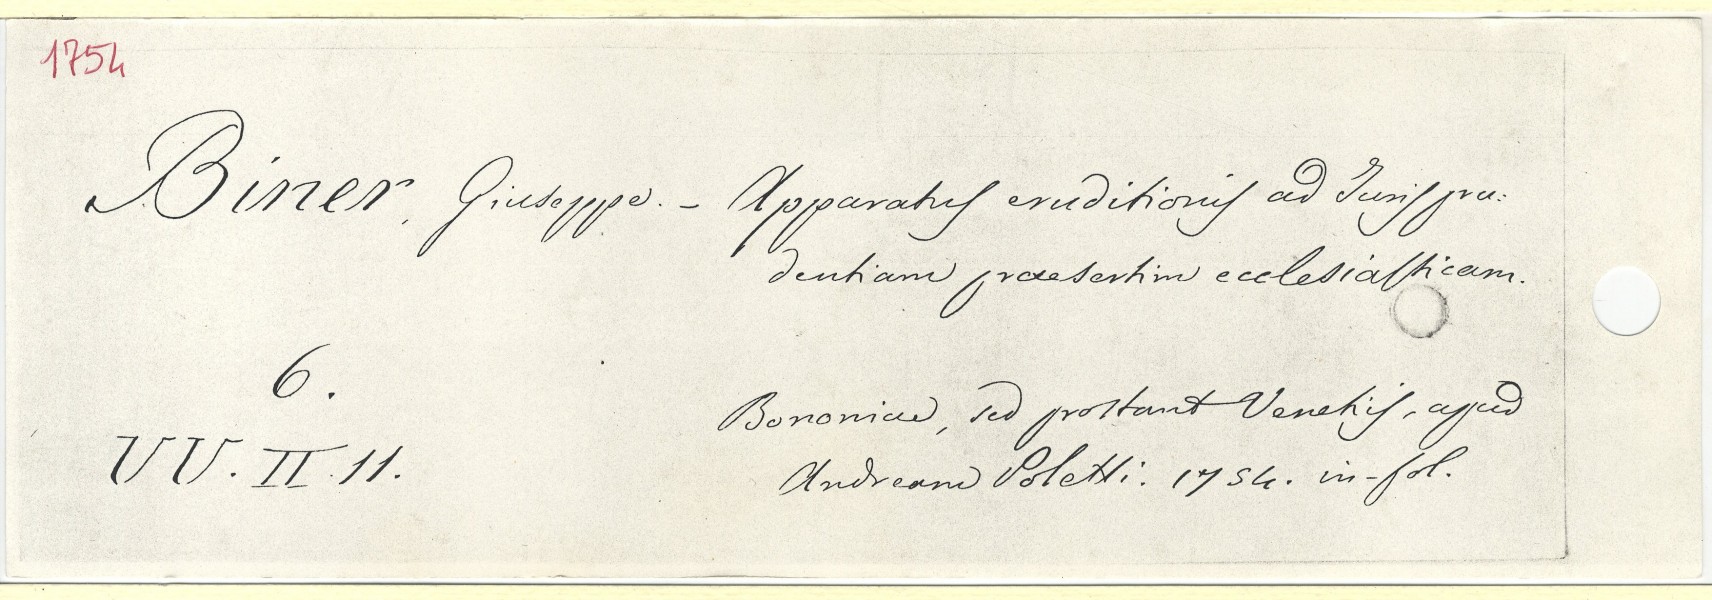 1754
Biner, Giuseppe. - Apparatus eruditionis ad Jurispru:
dentiam praesertim ecclesiasticam.
6.
VV. II. 11.
Bononiae, sed prostant Venetiis, apud
Andream Poletti. 1754. in-fol.